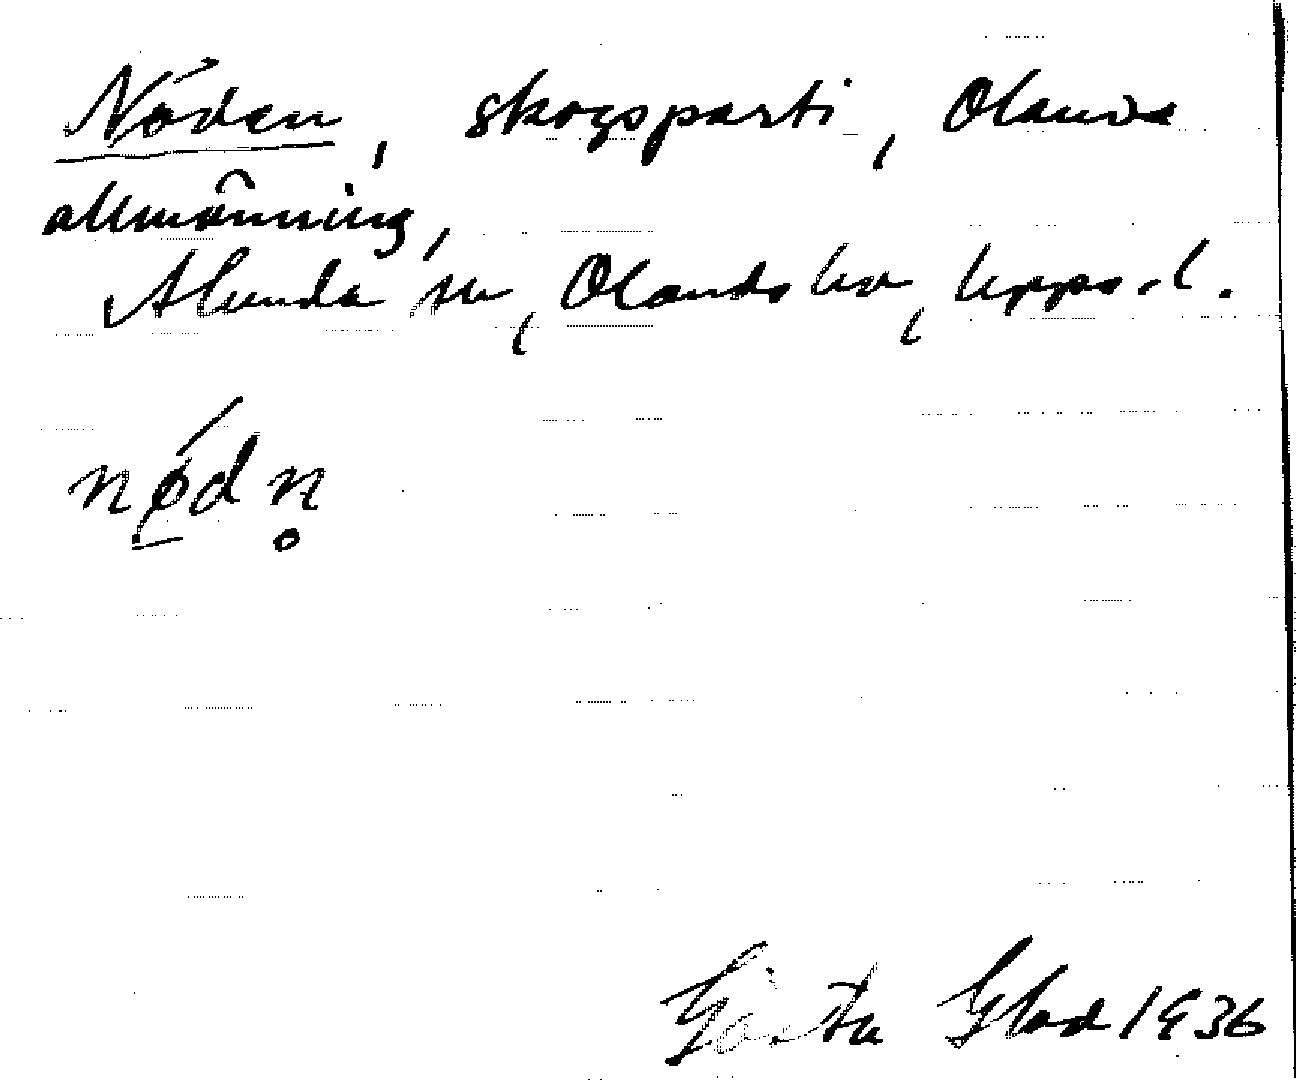 Nöden, skogsparti, Olands
allmänning,
Alunda sn, Olands hd, Upps. l.
nǿ̱dn̥
Gösta Glad 1936